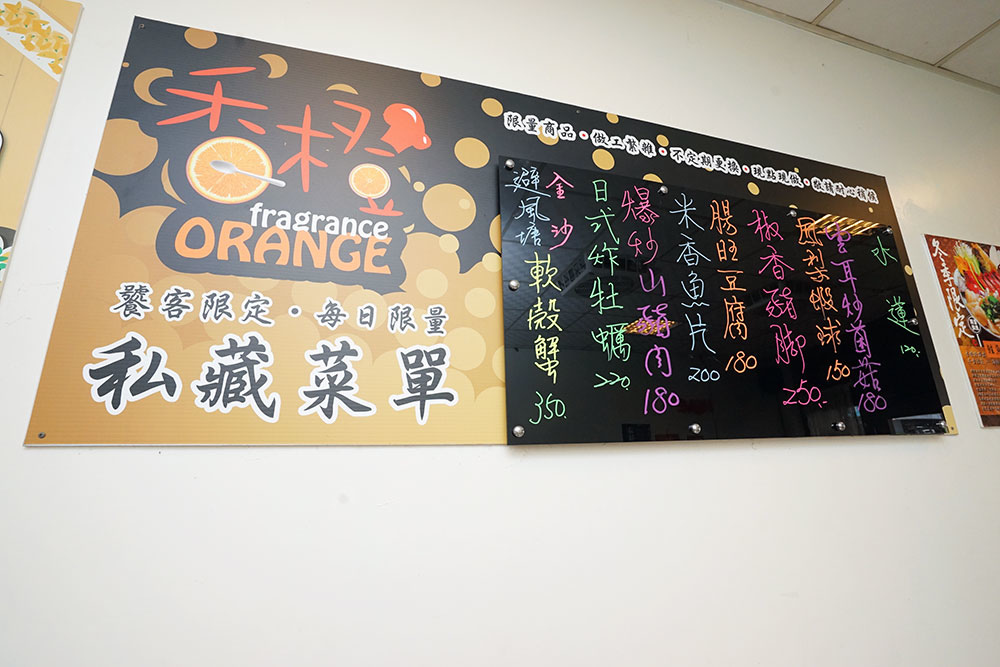 香橙
fragrance
ORANGE
饕客限定・每日限量
私藏菜單
限量商品・做工繁雜・不定期更換・現點現做・敬請耐心等候
避風塘
金沙
軟殼蟹 350.
日式炸牡蠣 220
爆炒山豬肉 180
米香魚片 200
腸旺豆腐 180
椒香豬腳 250.
鳳梨蝦球 150
雲耳炒菌菇 180
水蓮 120.
冬季限定